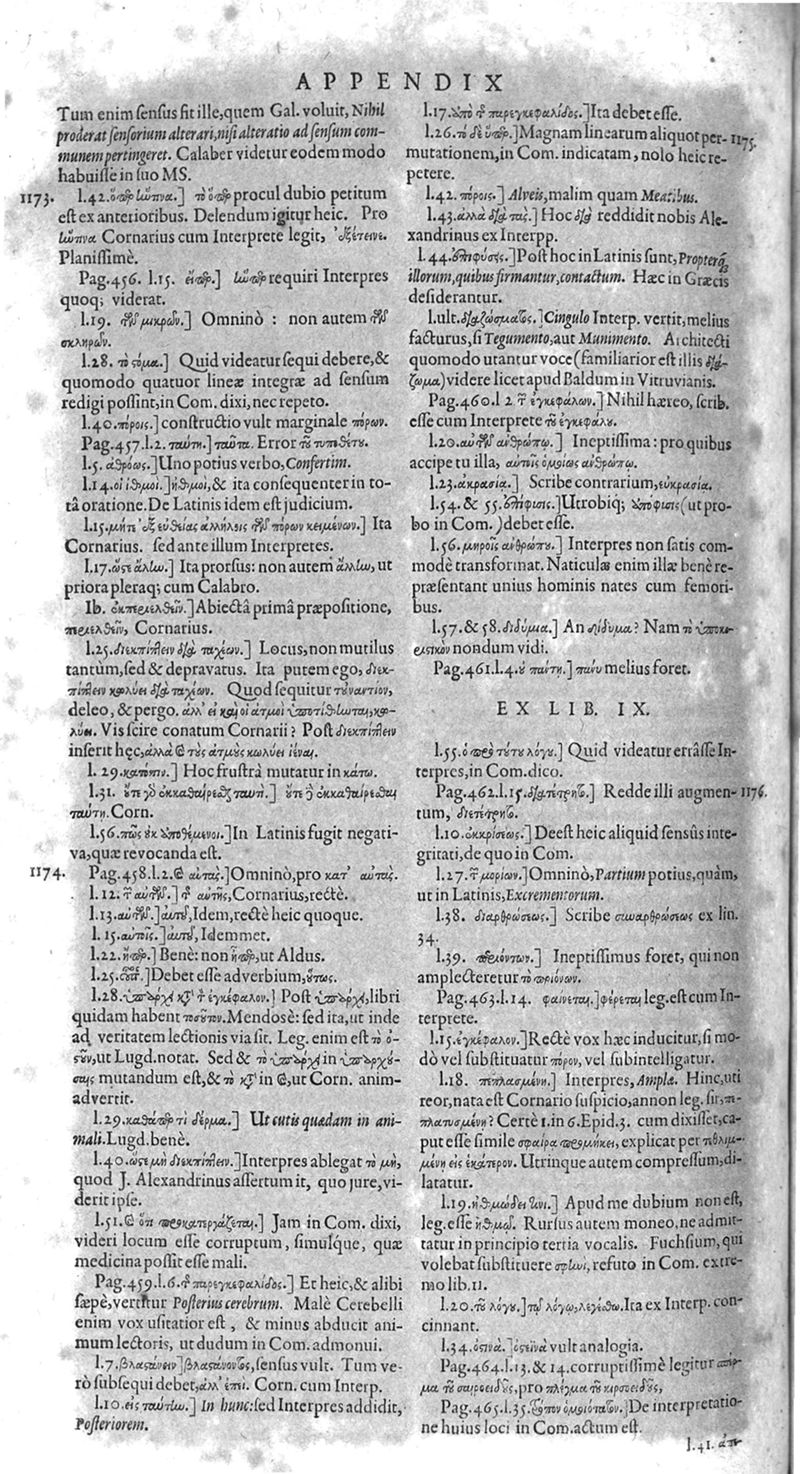 APPENDIX
Tum enim sensus sit ille, quem Gal. voluit, Nihil
proderat sensorium alterari, nisi alteratio ad sensum com-
munem pertingeret. Calaber videtur eodem modo
habuisse in suo MS.
1173. l.42. procul dubio petitum
est ex anterioribus. Delendum igitur heic. Pro
Cornarius cum Interprete legit,
Planissimè.
Pag.456. l.15. requiri Interpres
quoq; viderat.
l.19. τῶν μικρῶν.] Omninò : non autem τῶν
σκληρῶν.
l.28. τὸ σόμα.] Quid videatur sequi debere, &
quomodo quatuor lineæ integræ ad sensum
redigi possint, in Com. dixi, nec repeto.
l.40. πόροις.] constructio vult marginale πόρων.
Pag.457.l.2. ταύτη.] ταῦτα. Error τοῦ τυπιθέτου.
l.5. ἀθρόως.] Uno potius verbo, Confertim.
l.14. οἱ ἰθμοὶ.] ἠθμοὶ, & ita consequenter in to-
tâ oratione. De Latinis idem est judicium.
l.15. μήτε ἐξ εὐθείας ἀλλήλοις τῶν πόρων κειμένων.] Ita
Cornarius. sed ante illum Interpretes.
l.17. ὥστε ἄλλω.] Ita prorsus: non autem ἄλλω, ut
priora pleraq; cum Calabro.
Ib. Abiectâ primâ præpositione,
Cornarius.
l.25. διεκπίπλειν διὰ ταχέων.] Locus, non mutilus
tantùm, sed & depravatus. Ita putem ego, διεκ-
πίπλειν κωλύει διὰ ταχέων. Quod sequitur τοὐναντίον,
deleo, & pergo. ἀλλ' εἰ καὶ οἱ ἀτμοὶ
Vis scire conatum Cornarii? Post διεκπίπλειν
inserit hęc, ἀλλὰ καὶ τοὺς ἀτμοὺς κωλύει ἰέναι.
l. 29. Hoc frustrà mutatur in κάτω.
l.31.
ταύτη. Corn.
l.56. πῶς οὐκ ὑποθέμενοι.] In Latinis fugit negati-
va, quæ revocanda est.
1174. Pag.458.l.2. καὶ αὐτὰς.] Omninò, pro κατ' αὐτὰς.
l.12. αὐτῆς, Cornarius, rectè.
l.13. αὐτῶν.] αὐτοῦ, Idem, rectè heic quoque.
l.15. αὐτοῖς.] αὐτοῦ, Idem met.
l.22. Benè: non ut Aldus.
l.25. Debet esse adverbium, οὕτως.
l.28. ὑπάρχει κατὰ τὸν ἐγκέφαλον.] Post ὑπάρχει, libri
quidam habent τοσοῦτον. Mendosè: sed ita, ut inde
ad veritatem lectionis via sit. Leg. enim est
ut Lugd. notat. Sed & τὸ ὑπάρχει in ὑπάρχου-
σαις mutandum est, & τὸ κατὰ in καὶ, ut Corn. anim-
advertit.
l.29. καθάπερ τι δέρμα.] Ut cutis quædam in ani-
mali. Lugd. benè.
l.40. ὥστε μὴ διεκπίπλειν.] Interpres ablegat τὸ μὴ,
quod J. Alexandrinus assertum it, quo jure, vi-
derit ipse.
l.51. καὶ ὅτι προκατεργάζεται.] Jam in Com. dixi,
videri locum esse corruptum, simulque, quæ
medicina possit esse mali.
Pag.459.l.6. παρεγκεφαλίδος.] Et heic, & alibi
sæpè, vertitur Posterius cerebrum. Malè Cerebelli
enim vox usitatior est, & minus abducit ani-
mum lectoris, ut dudum in Com. admonui.
l.7. βλαστάνειν] βλαστάνοντος, sensus vult. Tum ve-
rò subsequi debet, ἀλλ' ἐπεὶ. Corn. cum Interp.
l.10. εἰς ταύτην.] In hunc: sed Interpres addidit,
Posteriorem.
l.17. παρεγκεφαλίδος.] Ita debet esse.
l.26. Magnam linearum aliquot per- 1175.
mutationem, in Com. indicatam, nolo heic re-
petere.
l.42. πόροις.] Alveis, malim quam Meatibus.
l.43. ἀλλὰ διὰ τὰς.] Hoc διὰ reddidit nobis Ale-
xandrinus ex Interpp.
l.44. Post hoc in Latinis sunt, Propterq;
illorum, quibus firmantur, contactum. Hæc in Græcis
desiderantur.
l.ult. διαζώσματος.] Cingulo Interp. vertit, melius
facturus, si Tegumento, aut Munimento. Architecti
quomodo utantur voce (familiarior est illis διά-
ζωμα) videre licet apud Baldum in Vitruvianis.
Pag.460.l 2 τῶν ἐγκεφάλων.] Nihil hæreo, scrib.
esse cum Interprete τοῦ ἐγκεφάλου.
l.20. αὐτῶν ἀνθρώπῳ.] Ineptissima: pro quibus
accipe tu illa, αὐτοῖς ὁμοίως ἀνθρώπῳ.
l.23. ἀκρασία.] Scribe contrarium, εὐκρασία.
l.54. & 55. Utrobiq; ὑπόφυσις (ut pro-
bo in Com.) debet esse.
l.56. μηροῖς ἀνθρώπου.] Interpres non satis com-
modè transformat. Naticulæ enim illæ benè re-
præsentant unius hominis nates cum femori-
bus.
l.57. & 58. διδύμια.] An δίδυμα? Nam τὸ ὑποκο-
ριστικὸν nondum vidi.
Pag.461.l.4. οὐ παύτη.] πάνυ melius foret.
EX LIB. IX.
l.55. ὁ πρὸ τούτου λόγου.] Quid videatur errâsse In-
terpres, in Com. dico.
Pag.462.l.15. Redde illi augmen- 1176.
tum, διετέτρητο.
l.10. ἐκκρίσεως.] Deest heic aliquid sensûs inte-
gritati, de quo in Com.
l.27. τῶν μορίων.] Omninò, Partium potius, quàm,
ut in Latinis, Excrementorum.
l.38. διαρθρώσεως.] Scribe συναρθρώσεως ex lin.
34.
l.39. Ineptissimus foret, qui non
amplecteretur
Pag.463.l.14. φαίνεται.] φέρεται leg. est cum In-
terprete.
l.15. ἐγκέφαλον.] Rectè vox hæc inducitur, si mo-
dò vel substituatur πόρον, vel subintelligatur.
l.18. πεπλασμένη.] Interpres, Amplæ. Hinc, uti
reor, nata est Cornario suspicio, annon leg. sit, πε-
πλατυσμένη? Certè 1. in 6. Epid.3. cum dixisset, ca-
put esse simile σφαίρα προμήκει, explicat per τεθλιμ-
μένη εἰς ἑκάτερον. Utrinque autem compressum, di-
latatur.
l.19. Apud me dubium non est,
leg. esse Rursus autem moneo, ne admit-
tatur in principio tertia vocalis. Fuchsium, qui
volebat substituere refuto in Com. extre-
mo lib.11.
l.20. τοῦ λόγου.] τῷ λόγῳ, λεγέσθω. Ita ex Interp. con-
cinnant.
l.34. ὀστινὰ.] ὀστεϊνὰ vult analogia.
Pag.464.l.13. & 14. corruptissimè legitur
μα τοῦ σαιροειδοῦς, pro πλέγμα τοῦ κιρσοειδοῦς,
Pag.465.l.35. De interpretatio-
ne huius loci in Com. actum est.
l.41. ἀπ